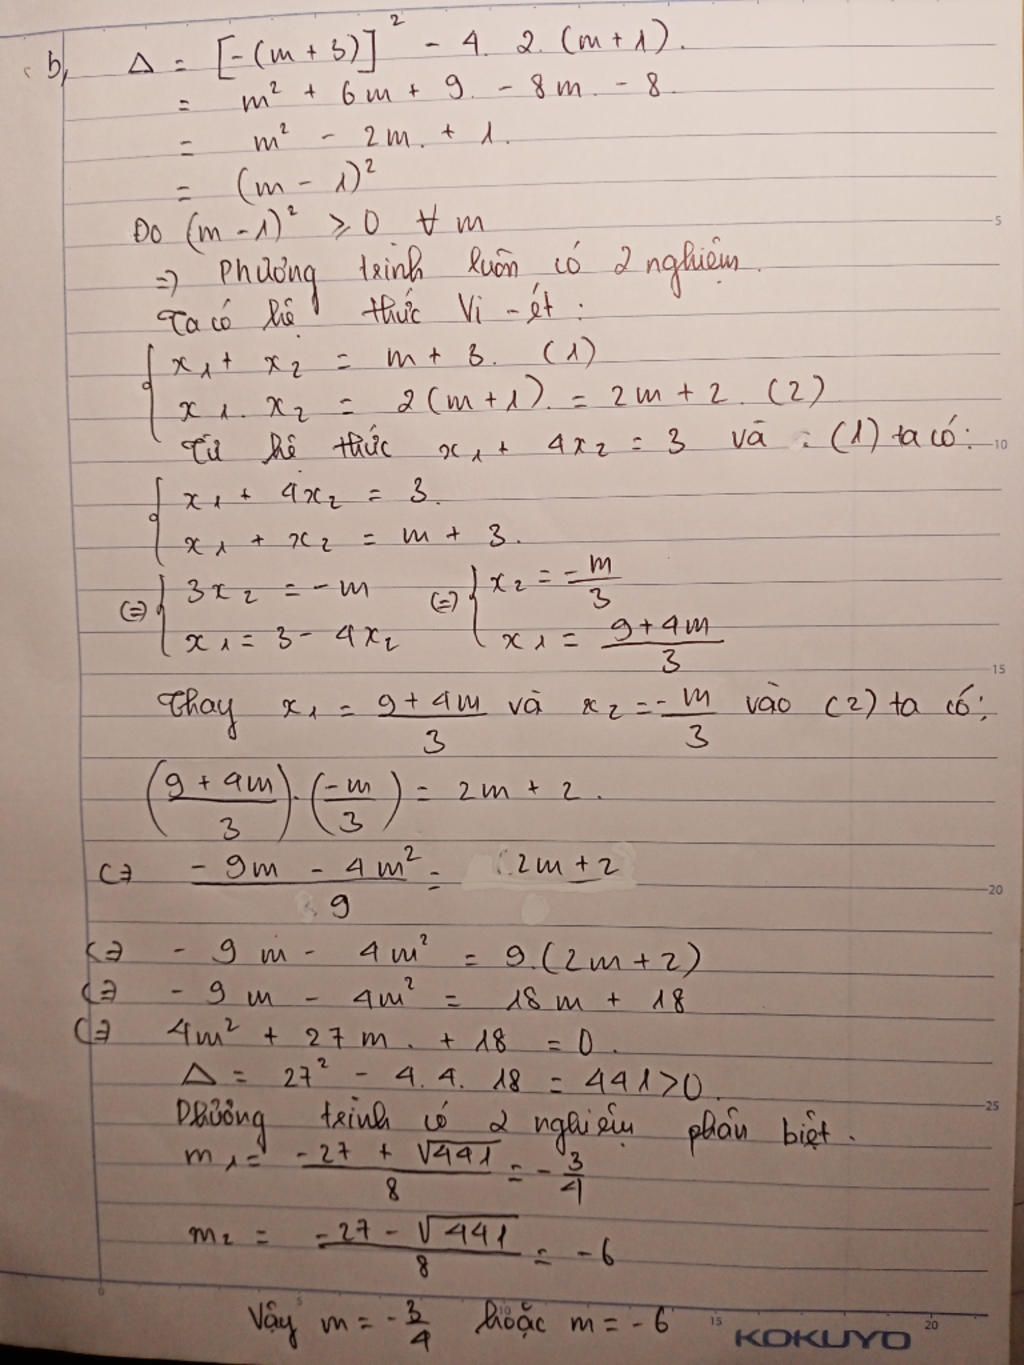 b, Δ = [-(m + 3)]² - 4. 2. (m + 1).
= m² + 6m + 9. - 8m. - 8.
= m² - 2m. + 1.
= (m - 1)²
Do (m - 1)² ≥ 0 ∀ m
=> Phương trình luôn có 2 nghiệm.
Ta có hệ thức Vi - ét :
x₁ + x₂ = m + 3. (1)
x₁. x₂ = 2(m + 1). = 2m + 2. (2)
Từ hệ thức x₁ + 4x₂ = 3 và (1) ta có:
x₁ + 4x₂ = 3.
x₁ + x₂ = m + 3.
(=) { 3x₂ = - m (=) { x₂ = -m/3
x₁ = 3 - 4x₂ x₁ = (9 + 4m)/3
Thay x₁ = (9 + 4m)/3 và x₂ = -m/3 vào (2) ta có:
((9 + 4m)/3).(-m/3) = 2m + 2.
(=) (- 9m - 4m²)/9 = 2m + 2
(=) - 9m - 4m² = 9.(2m + 2)
(=) - 9m - 4m² = 18m + 18
(=) 4m² + 27m. + 18 = 0.
Δ = 27² - 4. 4. 18 = 441 > 0.
Phương trình có 2 nghiệm phân biệt.
m₁ = (-27 + √441)/8 = -3/4
m₂ = (-27 - √441)/8 = -6
Vậy m = -3/4 hoặc m = -6
KOKUYO
5
10
15
20
25
15
20